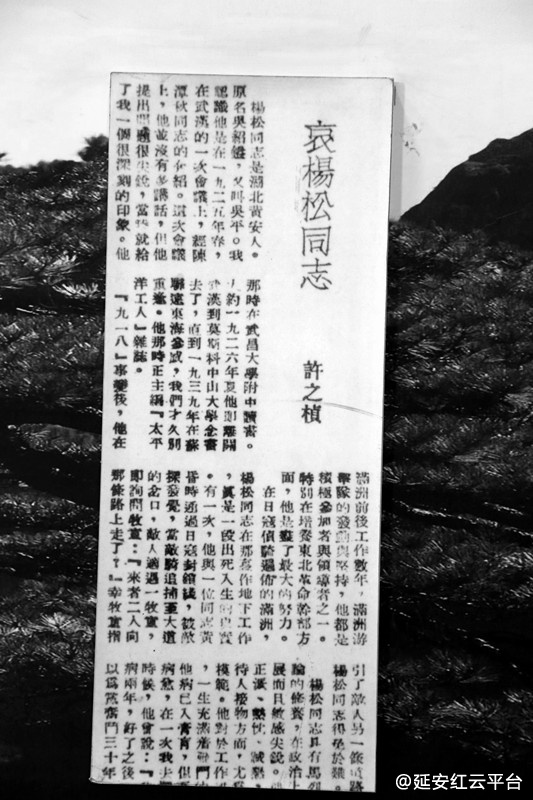 哀楊松同志
許之楨
楊松同志是湖北黃安人。
原名吳紹鎰,又叫吳平。我
認識他是在一九二五年春,
在武漢的一次會議上,經陳
潭秋同志的介紹。這次會議
上,他並沒有多講話,但他
提出問題很尖銳,當時就給
了我一個很深刻的印象。他
那時在武昌大學附中讀書。
大約一九二六年夏他即離開
武漢到莫斯科中山大學念書
去了,直到一九三九年在蘇
聯遠東海參崴,我們才久別
重逢。他那時正主編『太平
洋工人』雜誌。
『九一八』事變後,他在
滿洲前後工作數年,滿洲游
擊隊的發動與堅持,他都是
積極參加者與領導者之一。
特別在培養東北革命幹部方
面,他是盡了最大的努力。
在日寇偵騎遍佈的滿洲,
楊松同志在那裏作地下工作
,真是一段出死入生的史實
。有一次,他與一位同志黃
昏時通過日寇封鎖綫,被敵
探發覺,當敵騎追捕至大道
的岔口,敵人適遇一牧童,
即詢問牧童:『來者二人向
那條路上走了?』幸牧童指
引了敵人另一條道路
楊松同志得免於難。
楊松同志具有馬列
論的修養,在政治上
展而且敏感尖銳。
正派、熱忱、誠懇,
待人接物方面,尤爲
模範。他對於工作
,一生充滿着
他病已入膏肓,但
病,在一次我去
時候,他曾說:『
病兩年,好了之後
以爲黨奮鬥三十年
@延安红云平台